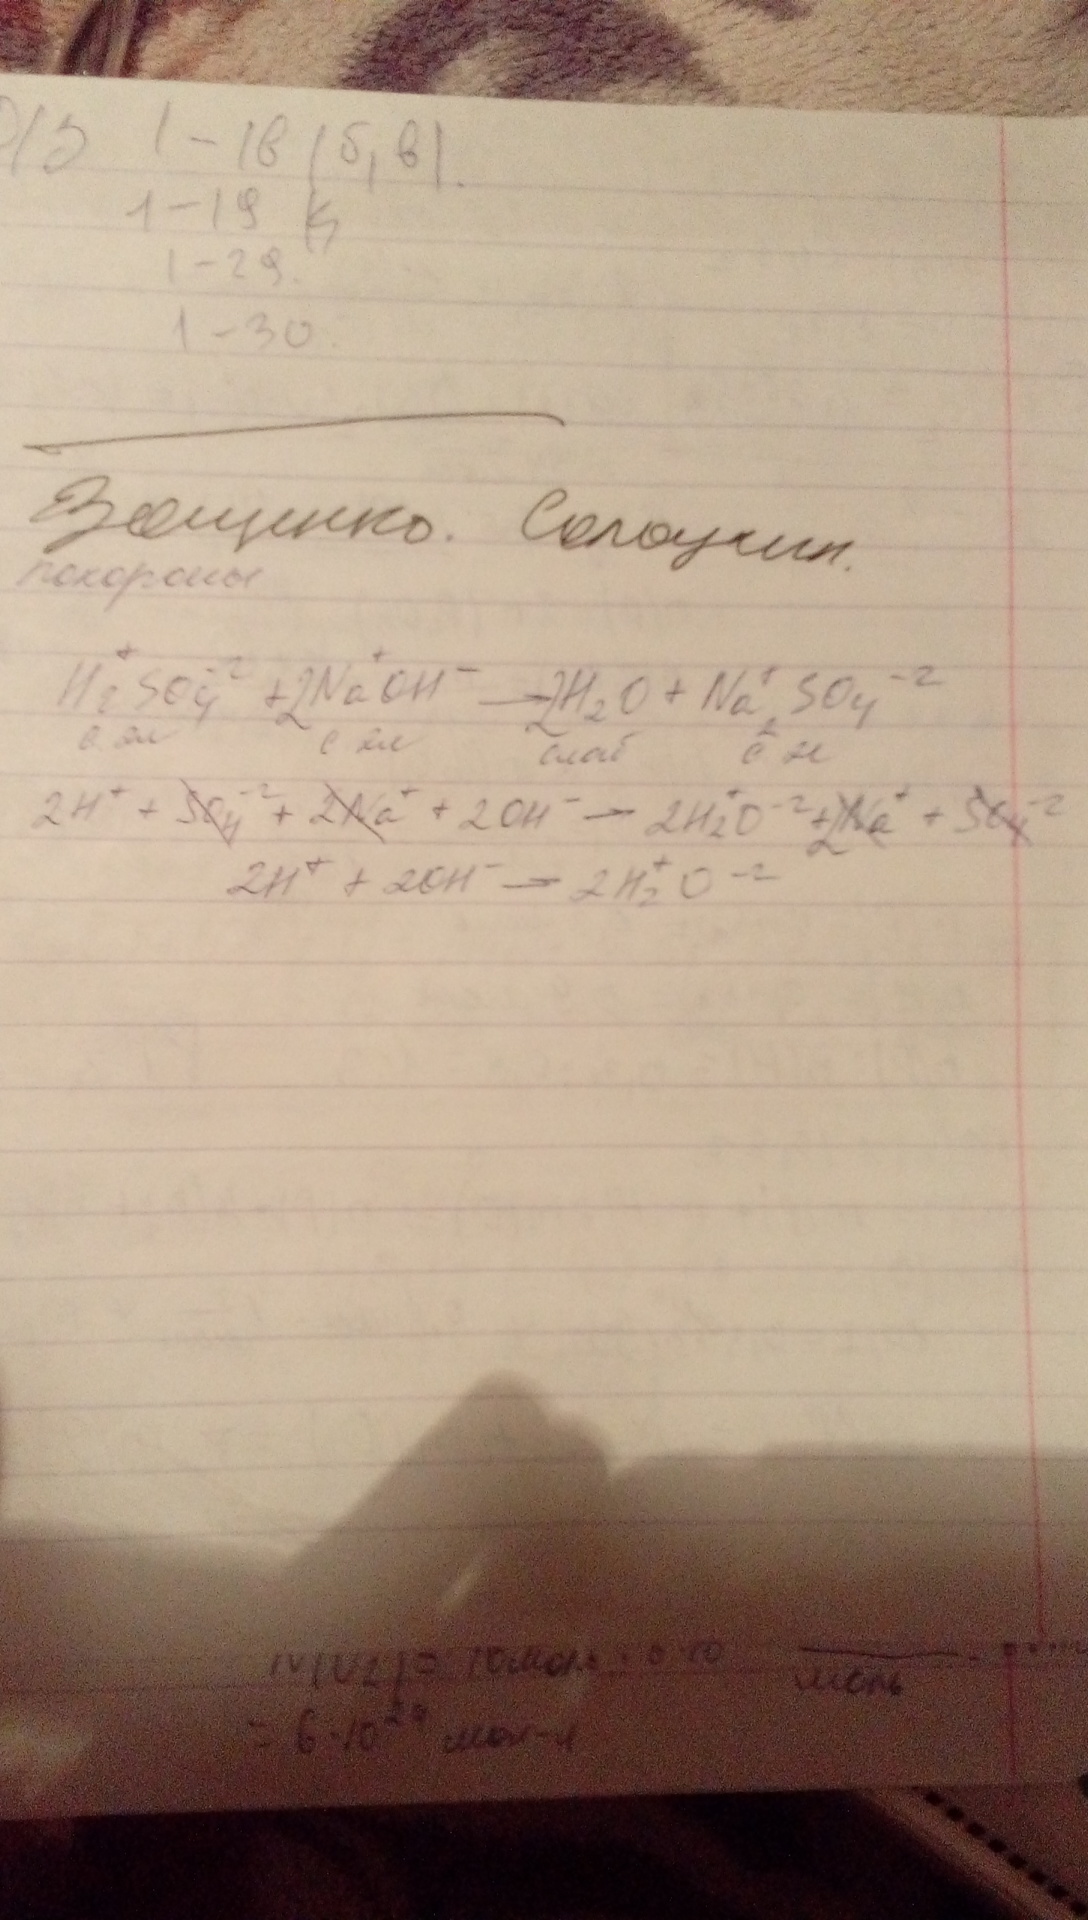 Д/З 1-18 (б, в).
1-19
1-29.
1-30.
Зощенко. Солоухин.
похороны
H₂⁺SO₄⁻² + 2Na⁺OH⁻ → 2H₂O + Na₂⁺SO₄⁻²
с. эл с эл слаб с. эл
2H⁺ + SO₄⁻² + 2Na⁺ + 2OH⁻ → 2H₂⁺O⁻² + 2Na⁺ + SO₄⁻²
2H⁺ + 2OH⁻ → 2H₂⁺O⁻²
моль
= 6·10²⁴ мол-л